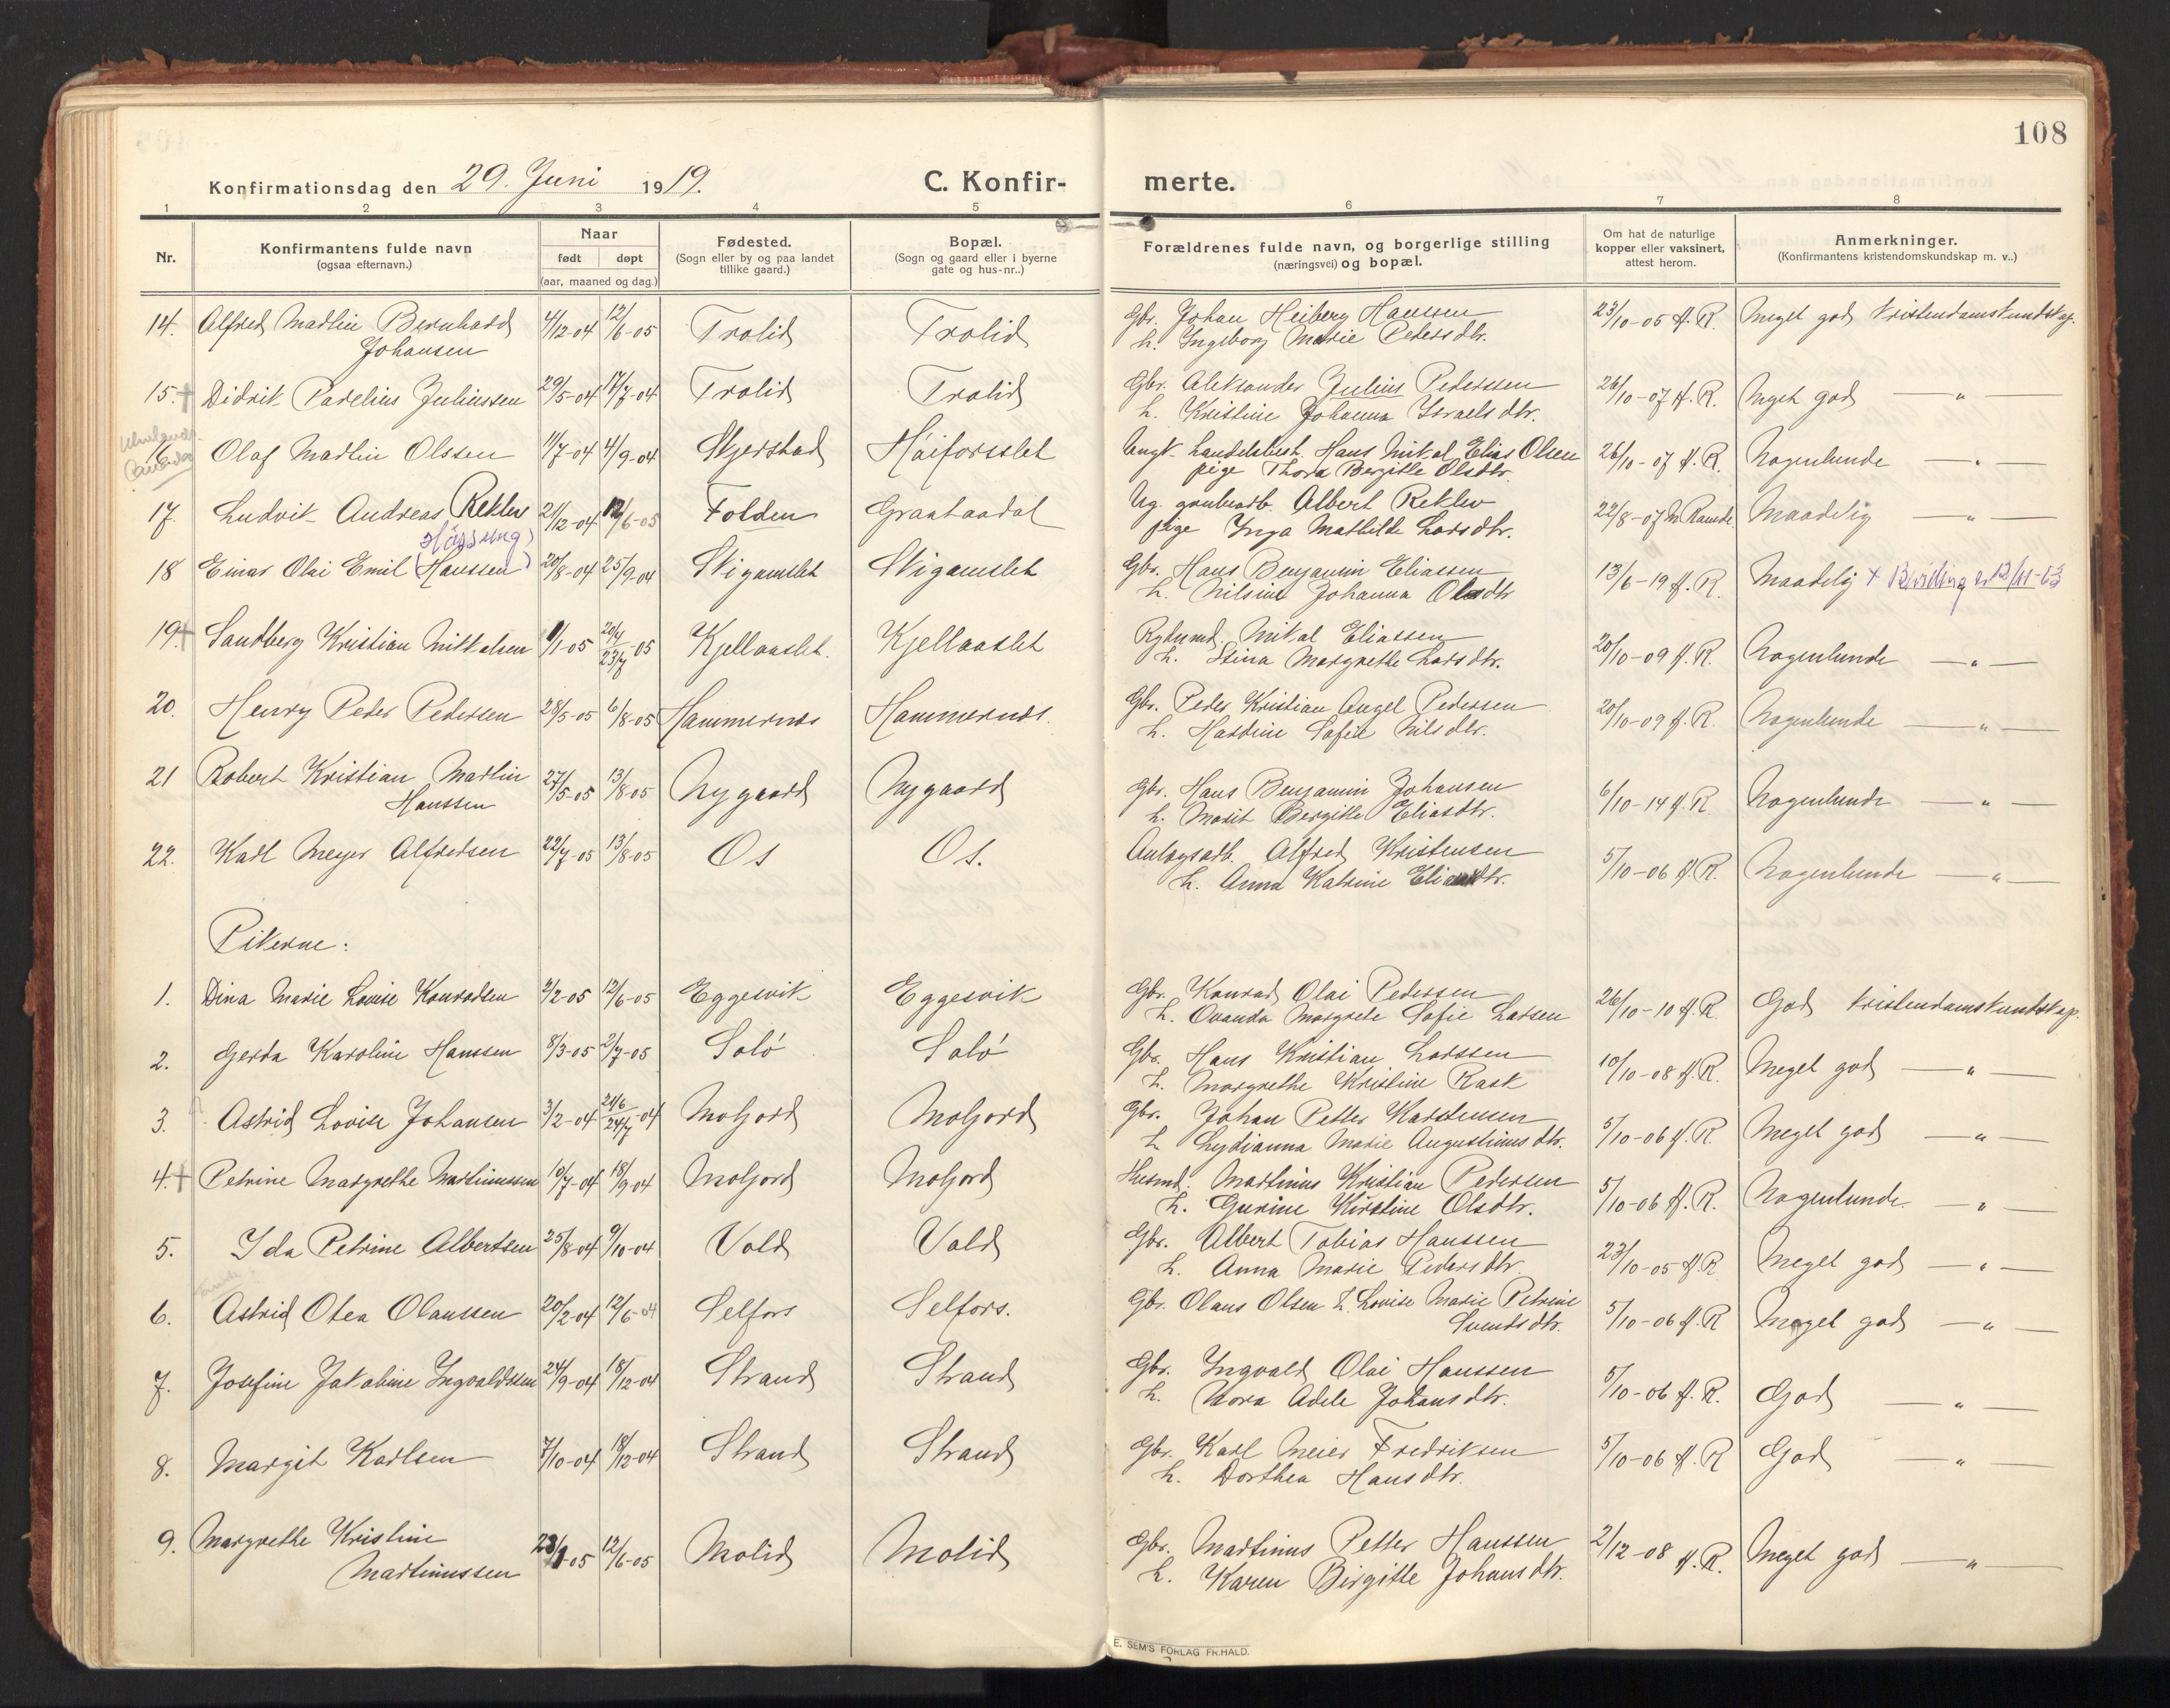 108
Konfirmationsdag den 29. Juni 1919.
C. Konfir- merte.
1 2 3 4 5 6 7 8
Nr.
Konfirmantens fulde navn
(ogsaa efternavn.)
Naar
født døpt
(aar, maaned og dag.)
Fødested.
(Sogn eller by og paa landet
tillike gaard.)
Bopæl.
(Sogn og gaard eller i byerne
gate og hus-nr..)
Forældrenes fulde navn, og borgerlige stilling
(næringsvei) og bopæl.
Om hat de naturlige
kopper eller vaksinert,
attest herom.
Anmerkninger.
(Konfirmantens kristendomskundskap m. v..)
14. Alfred Martin Bernhard 4/12-04 12/6-05 Trolid Trolid Gbr. Johan Heiberg Hanssen 23/10-05 A.R. Meget god Kristendomskundskap.
Johansen h. Ingeborg Marie Pedersdtr.
15. + Didrik Parelius Juliussen 29/5-04 17/7-04 Trolid Trolid Gbr. Aleksander Julius Pederssen 26/10-07 A.R. Meget god — " —
h. Kristine Johanna Israelsdtr.
16 Olaf Martin Olssen 11/7-04 4/9-04 Skjerstad Háiforsslet Ungk. handelsbest. Hans Mikal Elias Olsen 26/10-07 A.R. Nogenlunde — " —
pige Thora Bergitte Olsdtr.
17. Ludvik Andreas Reklev 21/12-04 12/6-05 Folden Graataadal Ug. grubearb. Albert Reklev 22/8-07 Maadelig — " —
pige Inga Mathilde Larsdtr.
18 Einar Olai Emil (Hanssen) 20/8-04 25/9-04 Stigamslet Stigamslet Gbr. Hans Benjamin Eliassen 13/6-19 A.R. Maadelig +
h. Nilsine Johanna Olsdtr
19. + Sandberg Kristian Mikkalsen 1/1-05 20/4 23/7-05 Kjellaaslet. Kjellaaslet Rydnmd. Mikal Eliassen 20/10-09 A.R. Nogenlunde — " —
h. Stina Margrethe Larsdtr.
20. Henry Peder Pedersen 28/5-05 6/8-05 Hammernes Hammernes. Gbr. Peder Kristian Angel Pedersen 20/10-09 A.R. Nogenlunde — " —
h. Hardine Sofie Nilsdtr.
21 Robert Kristian Martin 27/5-05 13/8-05 Nygaard Nygaard Gbr. Hans Benjamin Johansen 6/10-14 A.R Nogenlunde — " —
Hanssen h. Marit Bergitte Eliasdtr.
22. Karl Meyer Alfredsen 22/7-05 13/8-05 Os Os. Anlægsarb. Alfred Kristensen 5/10-06 A.R. Nogenlunde — " —
h. Anna Katrine Eliasdtr.
Pikerne:
1. Dina Marie Lovise Konradsen 2/2-05 12/6-05 Eggesvik Eggesvik Gbr. Konrad Olai Pedersen 26/10-10 A.R. God Kristendomskundskap.
h. Ovanda Margrete Sofie Larsen
2. Gerda Karoline Hanssen 8/3-05 2/7-05 Soló Soló Gbr. Hans Kristian Larssen 10/10-08 A.R. Meget god — " —
h. Margrethe Kristine Rask
3. Astrid Lovise Johansen 3/2-04 24/6 24/7 04 Moljord Moljord Gbr. Johan Petter Karstensen 5/10-06 A.R. Meget god — " —
h Lydianna Marie Augustinusdtr.
4. + Petrine Margrethe Martinussen 10/7-04 18/9-04 Moljord Moljord Husmd. Martinus Kristian Pedersen 5/10-06 A.R. Nogenlunde — " —
h. Gurine Kirstine Olsdtr.
5. Ida Petrine Albertsen 25/8-04 9/10-04 Vold Vold Gbr. Albert Tobias Hanssen 23/10-05 A.R Meget god — " —
h. Anna Marie Pedersdtr.
6. Astrid Otea Olaussen 20/2-04 12/6-04 Selfors Selfors. Gbr. Olaus Olsen h. Lovise Marie Petrine 5/10-06 A.R Meget god — " —
Svendsdtr.
7. Josefine Jakobine Ingvaldsen 24/9-04 18/12-04 Strand Strand Gbr. Ingvald Olai Hanssen 5/10-06 A.R. God — " —
h. Nora Adele Johansdtr.
8. Margit Karlsen 7/10-04 18/12-04 Strand Strand Gbr. Karl Meier Fredriksen 5/10-06 A.R God — " —
h. Dorthea Hansdtr.
9. Margrethe Kristine 23/1-05 12/6-05 Molid Molid Gbr. Martinus Petter Hanssen 2/12-08 A.R. Meget god — " —
Martinussen h. Karen Birgitte Johansdtr.
E. SEM'S FORLAG FR.HALD.